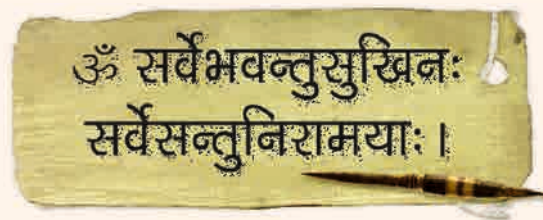 ॐ सर्वेभवन्तुसुखिनः
सर्वेसन्तुनिरामयाः।